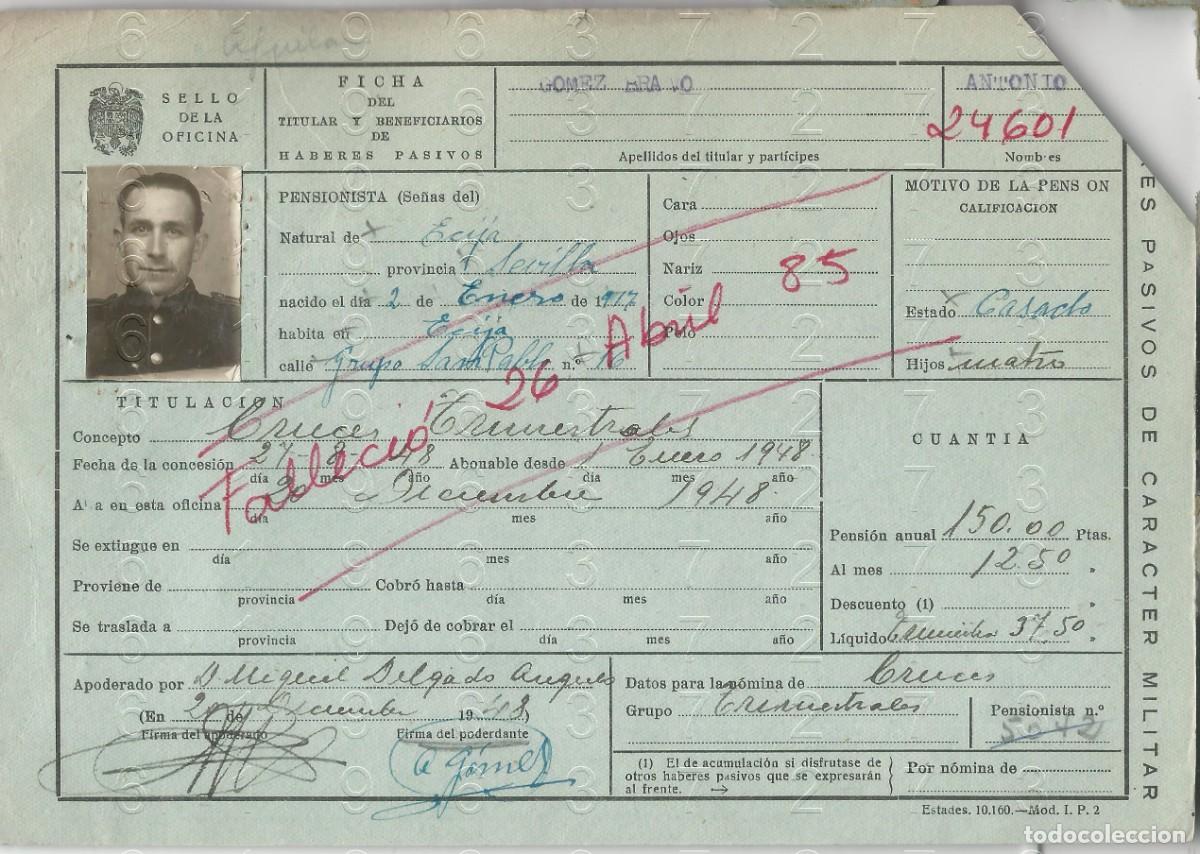 Aguila
SELLO
DE LA
OFICINA
FICHA
DEL
TITULAR Y BENEFICIARIOS
DE
HABERES PASIVOS
GOMEZ BRAVO
Apellidos del titular y partícipes
ANTONIO
24601
Nombres
PENSIONISTA (Señas del)
Natural de Ecija
provincia Sevilla
nacido el día 2 de Enero de 1917
habita en Ecija
calle Grupo San Pablo n.º 16
Cara
Ojos
Nariz
Color
Pelo
85
MOTIVO DE LA PENSION
CALIFICACION
Estado Casado
Hijos cuatro
Falleció 26 Abril
TITULACION
Concepto Cruces Trimestrales
Fecha de la concesión 27-8-48 Abonable desde 1 Enero 1948
día mes año día mes año
Alta en esta oficina 20 Diciembre 1948
día mes año
Se extingue en
día mes año
Proviene de Cobró hasta
provincia día mes año
Se traslada a Dejó de cobrar el
provincia día mes año
CUANTIA
Pensión anual 150.00 Ptas.
Al mes 12.50 »
Descuento (1) »
Líquido Trimestre 37,50 »
Apoderado por D. Miguel Delgado Angulo
(En 20 de Diciembre 1948)
Firma del apoderado Firma del poderdante
A Gómez
Datos para la nómina de Cruces
Grupo Trimestrales
Pensionista n.º
5042
(1) El de acumulación si disfrutase de
otros haberes pasivos que se expresarán
al frente. →
Por nómina de
Estades. 10.160.—Mod. I. P. 2
RES PASIVOS DE CARACTER MILITAR
todocoleccion